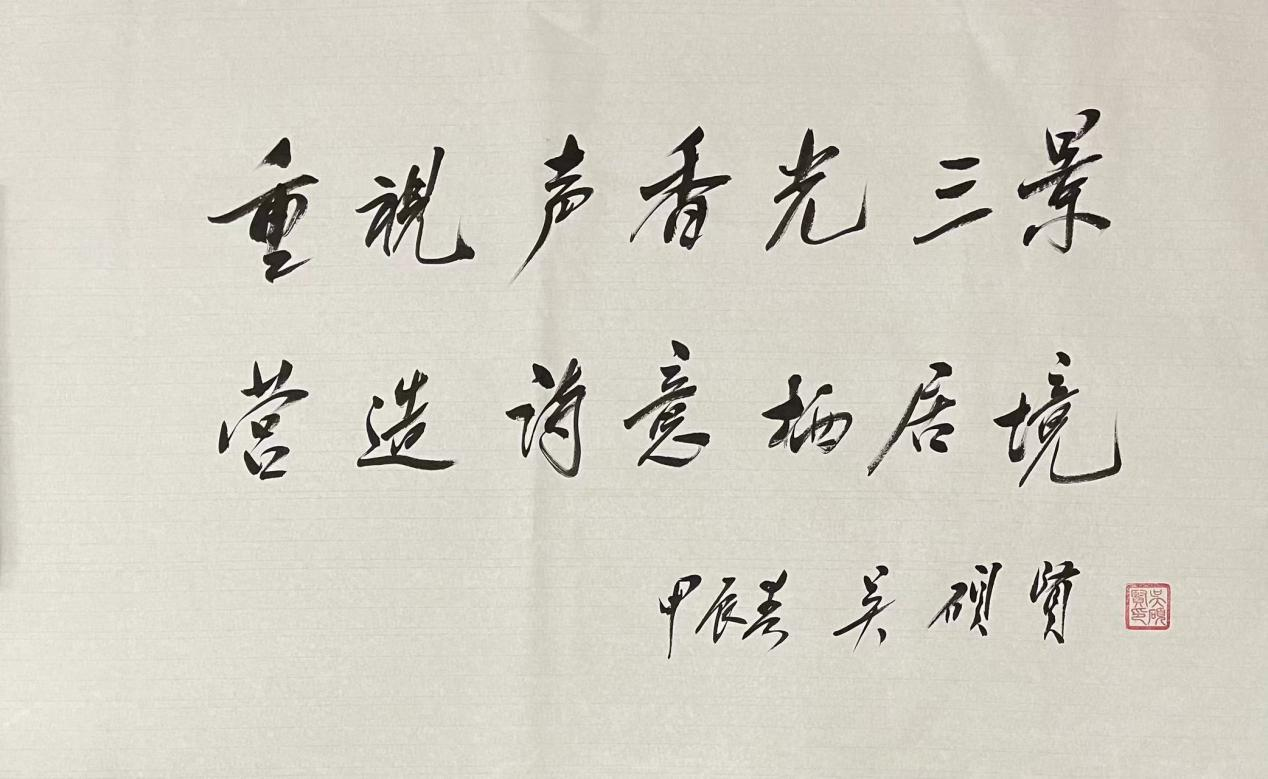 重视声香光三景
营造诗意栖居境
甲辰春 吴硕贤
吴硕贤印